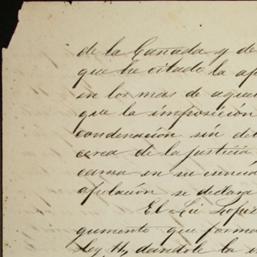 de la Cañada y de
que he citado la ape
en los mas de aque
que la imposición
condenación sin de
cerca de la justicia
causa en su
apelación se declara
El Lic Lopez
gumento que forma
ley 11, dandole la i